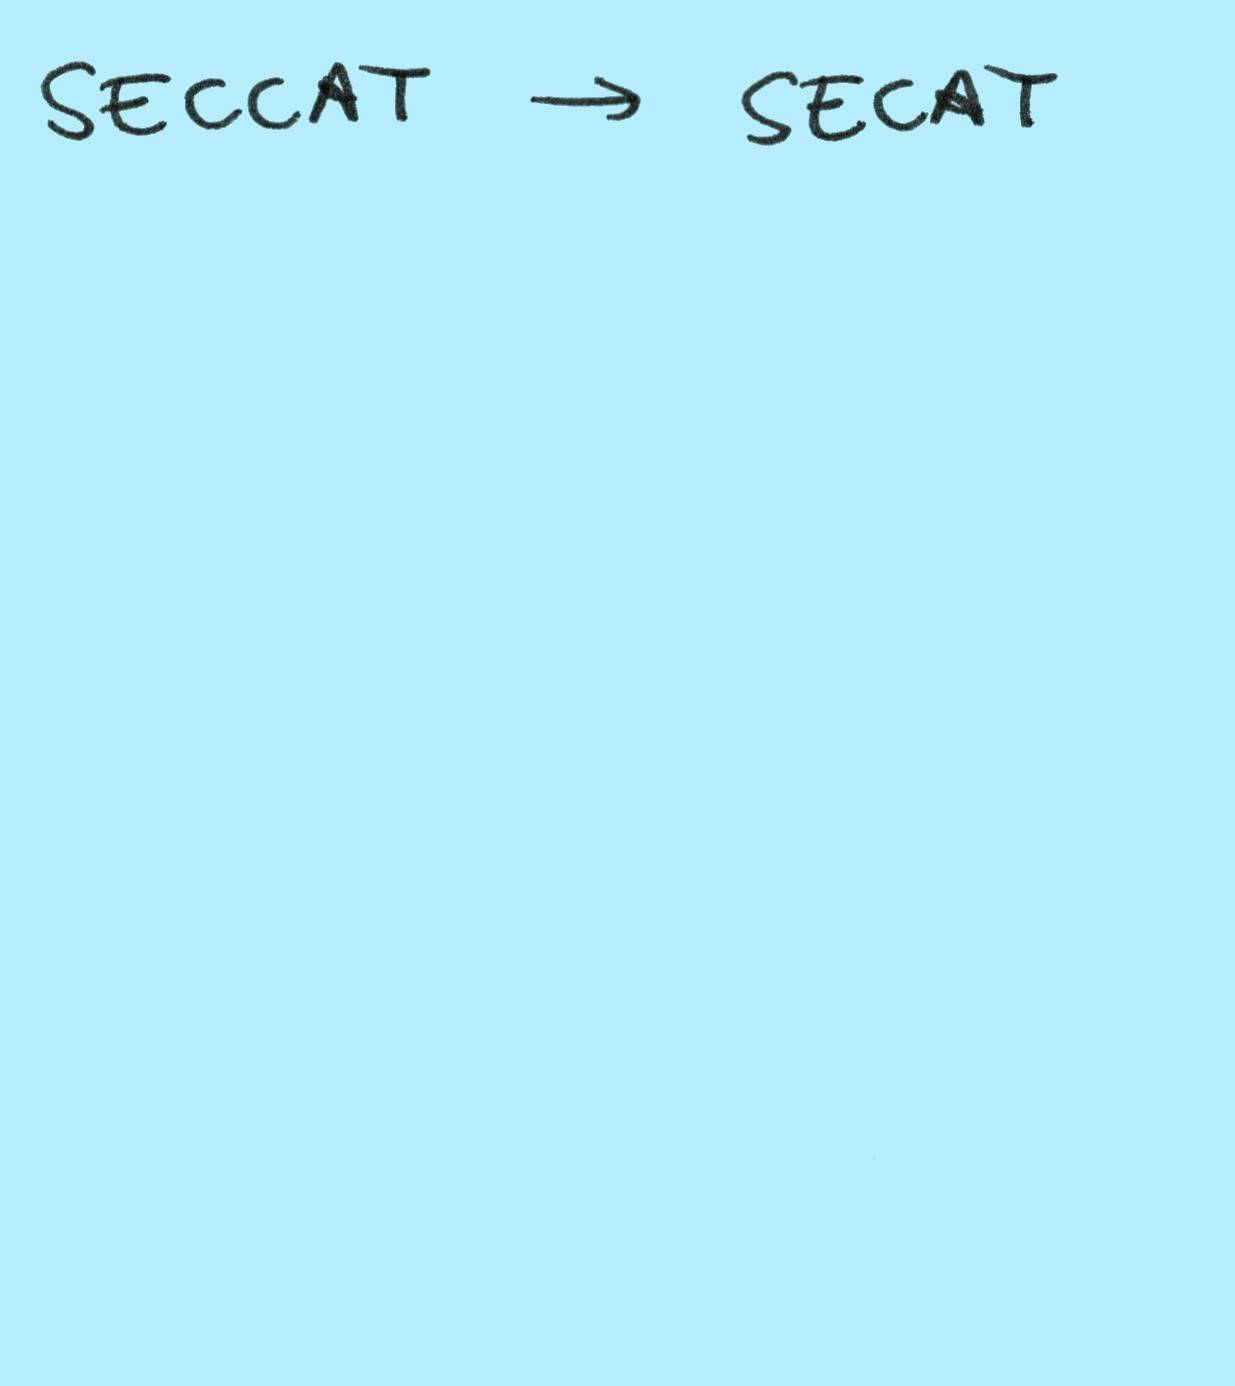 SECCAT → SECAT